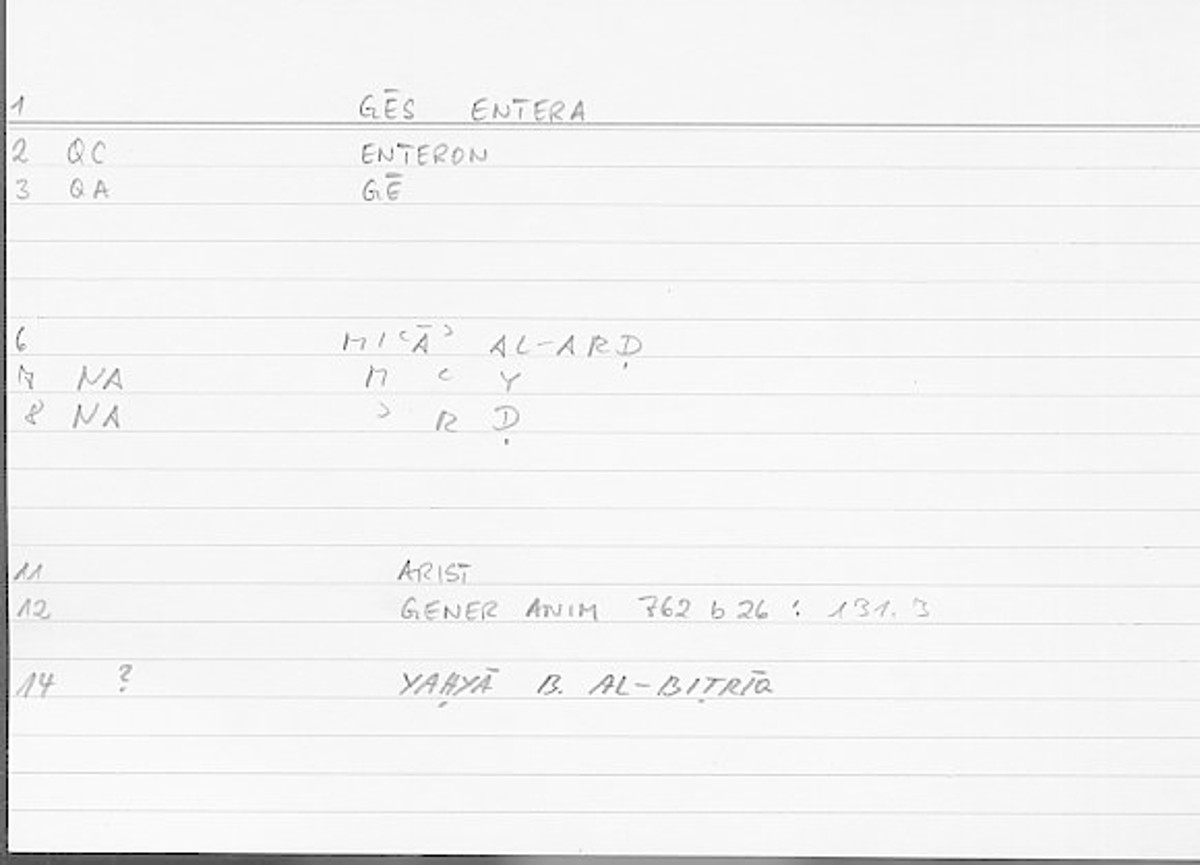 1 GĒS ENTERA
2 QC ENTERON
3 QA GĒ
6 MIʿĀʾ AL-ARḌ
7 NA M ʿ Y
8 NA ʾ R Ḍ
11 ARIST
12 GENER ANIM 762 b 26 : 131.3
14 ? YAḤYĀ B. AL-BIṬRĪQ